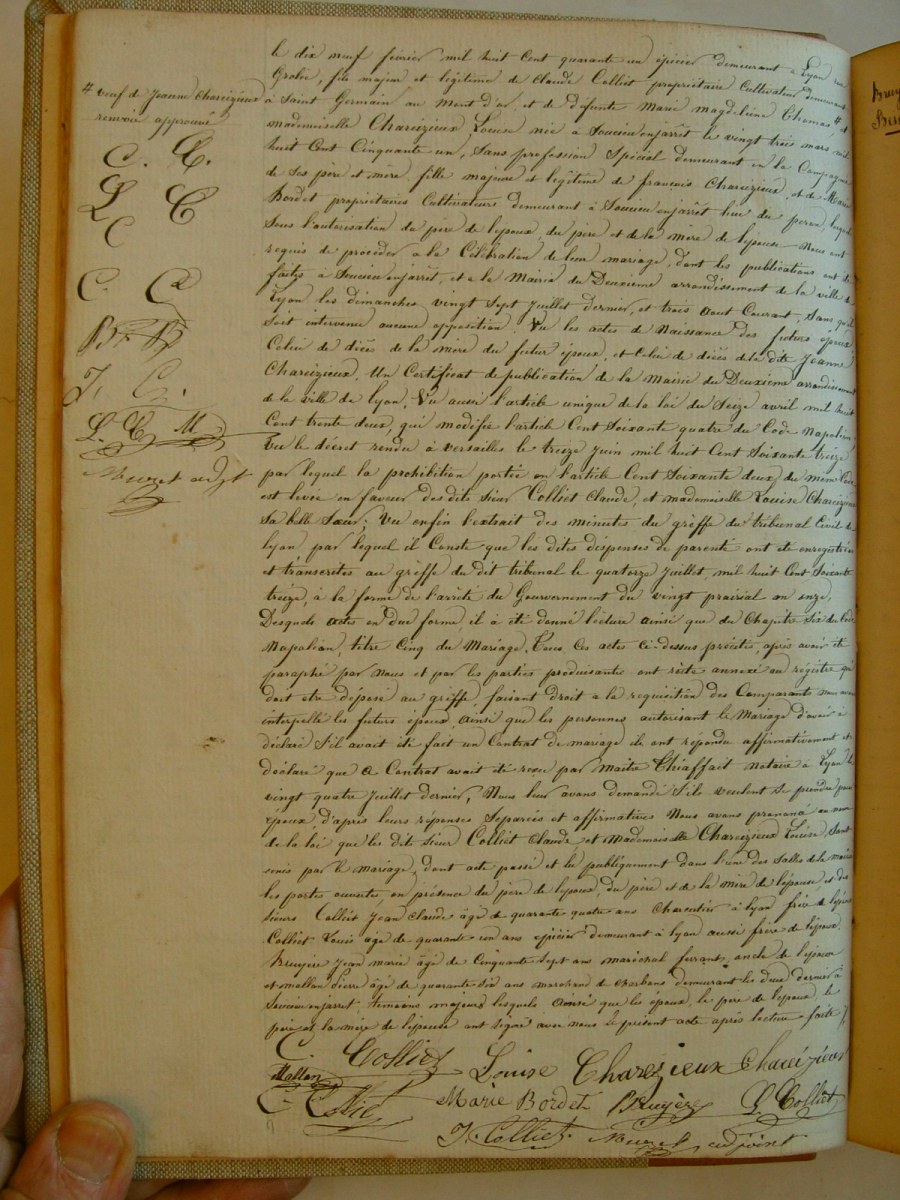 le dix neuf février mil huit Cent quarante un épicier demeurant à Lyon rue
Grolée, fils majeur et légitime de Claude Colliet propriétaire Cultivateur demeurant
à Saint Germain au Mont d'or et de défunte Marie magdeleine Thomas # et
mademoiselle Charézieux Louise née à Soucieu enjarrêt le vingt trois mars mil
huit Cent Cinquante un, Sans profession Spécial demeurant en la Compagnie
de Ses père et mère, fille majeure et légitime de françois Charézieux, et de Marie
Bordet propriétaires Cultivateurs demeurant à Soucieu enjarrêt lieu du peron, lesquels
Sous l'autorisation du père de l'époux, du père et de la mère de l'épouse Nous ont
requis de procéder a la Célébration de leur mariage, dont les publications ont été
faites à Soucieu enjarrêt, et a la Mairie du Deuxième arrondissement de la ville de
Lyon les dimanches vingt Sept Juillet dernier, et trois aout Courant, Sans qu'il
Soit intervenue aucune opposition. Vu les actes de Naissance des futurs époux
Celui de décès de la mère du futur époux, et Celui de décès de la dite Jeanne
Charézieux. Un Certificat de publication de la Mairie du Deuxième arrondissement
de la ville de Lyon, Vu aussi l'article unique de la loi du Seize avril mil huit
Cent trente deux, qui modifie l'article Cent Soixante quatre du Code Napoléon
Vu le décret rendu à versailles le treize Juin mil huit Cent Soixante treize
par lequel la prohibition portée en l'article Cent Soixante deux du mem Code
est levée en faveur des dits Sieur Colliet Claude, et mademoiselle Louise Charézieux
Sa belle Sœur; Vu enfin l'extrait des minutes du greffe du tribunal Civil de
Lyon, par lequel il Conste que les dites dispenses de parenté ont été enregistrées
et transcrites au greffe du dit tribunal le quatorze Juillet, mil huit Cent Soixante
treize, à la forme de l'arrêté du Gouvernement du vingt prairial an onze,
Desquels actes en due forme il a été donné lecture ainsi que du Chapitre Six du Code
Napoléon, titre Cinq du Mariage. Tous Ces actes Ci-dessus précités, après avoir été
paraphé par Nous et par les parties produisantes ont resté annexé au régistre qui
doit etre déposé au greffe, faisant droit a la requisition des Comparants nous avons
interpellé les futurs époux, ainsi que les personnes autorisant le Mariage d'avoir à
déclaré S'il avait été fait un Contrat de mariage ils ont répondu affirmativement et
déclaré que Ce Contrat avait été reçu par Maitre Thiaffait Notaire à Lyon le
vingt quatre Juillet dernier, Nous leur avons demandé S'ils veulent Se prendre pour
époux, d'après leurs réponses Séparées et affirmatives Nous avons prononcé au nom
de la loi que les dits Sieur Colliet Claude, et Mademoiselle Charézieux Louise, Sont
unis par le mariage, dont acte passé et lu publiquement dans l'une des Salles de la mairie
les portes ouvertes, en présence du père de l'époux, du père et de la mère de l'épouse et des
Sieurs Colliet Jean Claude âgé de quarante quatre ans Charcutier à Lyon frère de l'époux
Colliet Louis âgé de quarante un ans épicier demeurant à Lyon aussi frère de l'époux,
Bruyère Jean marie âgé de Cinquante Sept ans maréchal ferrant, oncle de l'épouse
et Mallan Pierre âgé de quarante dix ans marchand de Charbons demeurant les deux dernier à
Soucieu enjarrêt, témoins majeurs lesquels ainsi que les époux, le père de l'époux, le
père et la mère de l'épouse ont signé avec nous le présent acte après lecture faite
# veuf de Jeanne Charézieux
renvoi approuvé
C. C.
L C
C
C. C
B B
J. C.
L. C M
adjt
C. Colliet Louise Charézieux Charézieux
Mallan
C. Colliet Marie Bordet Bruyère L. Colliet
J. Colliet adjoint